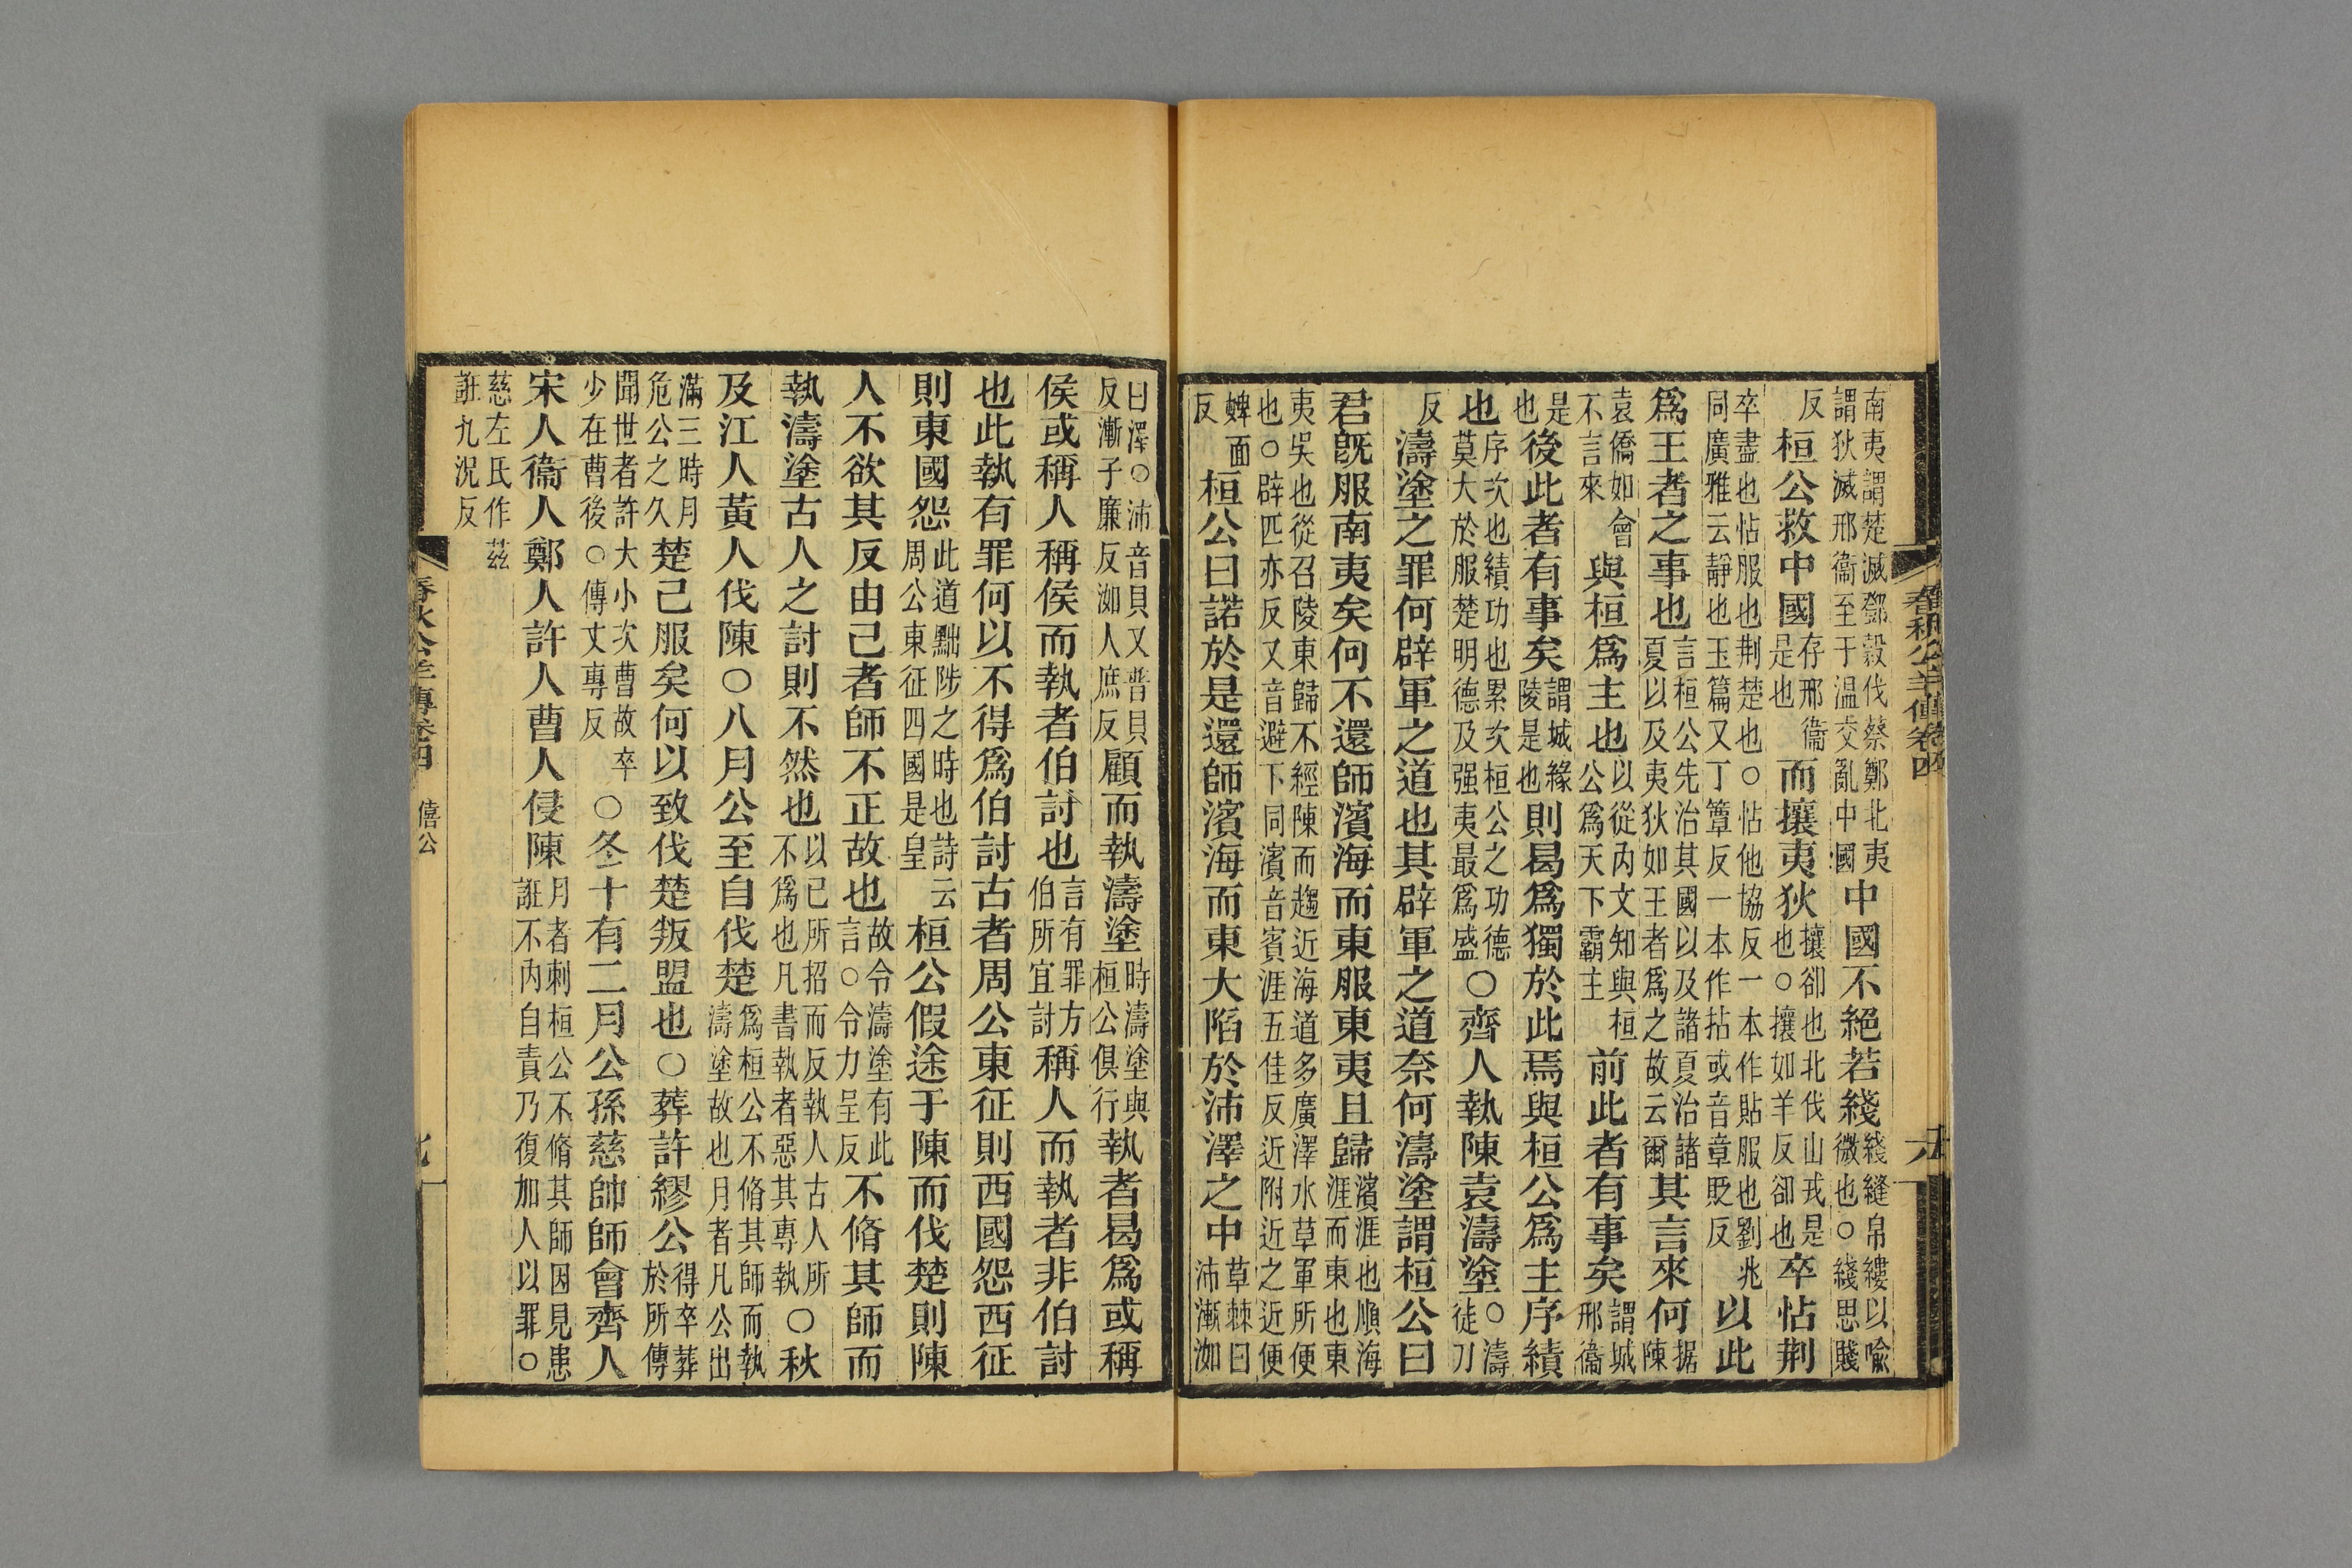 南夷謂楚滅鄧穀伐蔡鄭北夷謂狄滅邢衞至于温交亂中國中國不絕若綫綫縫帛縷以喻微也○綫思賤
反桓公救中國存邢衞是也而攘夷狄攘卻也北伐山戎是也○攘如羊反卻也卒怗荆
卒盡也怗服也荆楚也○怗他協反一本作貼服也劉兆同廣雅云靜也玉篇又丁簟反一本作拈或音章貶反以此
爲王者之事也言桓公先治其國以及諸夏治諸夏以及夷狄如王者爲之故云爾其言來何据陳
袁僑如會不言來與桓爲主也以從内文知與桓公爲天下霸主前此者有事矣謂城邢衞
是也後此者有事矣謂城緣陵是也則曷爲獨於此焉與桓公爲主序績
也序次也績功也累次桓公之功德莫大於服楚明德及强夷最爲盛○齊人執陳袁濤塗○濤徒刀
反濤塗之罪何辟軍之道也其辟軍之道奈何濤塗謂桓公曰
君旣服南夷矣何不還師濱海而東服東夷且歸濱涯也順海涯而東也東
夷吳也從召陵東歸不經陳而趨近海道多廣澤水草軍所便也○辟匹亦反又音避下同濱音賓涯五佳反近附近之近便
婢面反桓公曰諾於是還師濱海而東大陷於沛澤之中草棘曰沛漸洳
曰澤○沛音貝又普貝反漸子廉反洳人庶反顧而執濤塗時濤塗與桓公俱行執者曷爲或稱
侯或稱人稱侯而執者伯討也言有罪方伯所宜討稱人而執者非伯討
也此執有罪何以不得爲伯討古者周公東征則西國怨西征
則東國怨此道黜陟之時也詩云周公東征四國是皇桓公假途于陳而伐楚則陳
人不欲其反由己者師不正故也故令濤塗有此言○令力呈反不脩其師而
執濤塗古人之討則不然也以已所招而反執人古人所不爲也凡書執者惡其專執○秋
及江人黃人伐陳○八月公至自伐楚爲桓公不脩其師而執濤塗故也月者凡公出
滿三時月危公之久楚己服矣何以致伐楚叛盟也○葬許繆公得卒葬於所傳
聞世者許大小次曹故卒少在曹後○傳丈專反○冬十有二月公孫慈帥師會齊人
宋人衞人鄭人許人曹人侵陳月者刺桓公不脩其師因見患誑不内自責乃復加人以罪○
慈左氏作茲誑九況反
春秋公羊傳卷四 僖公